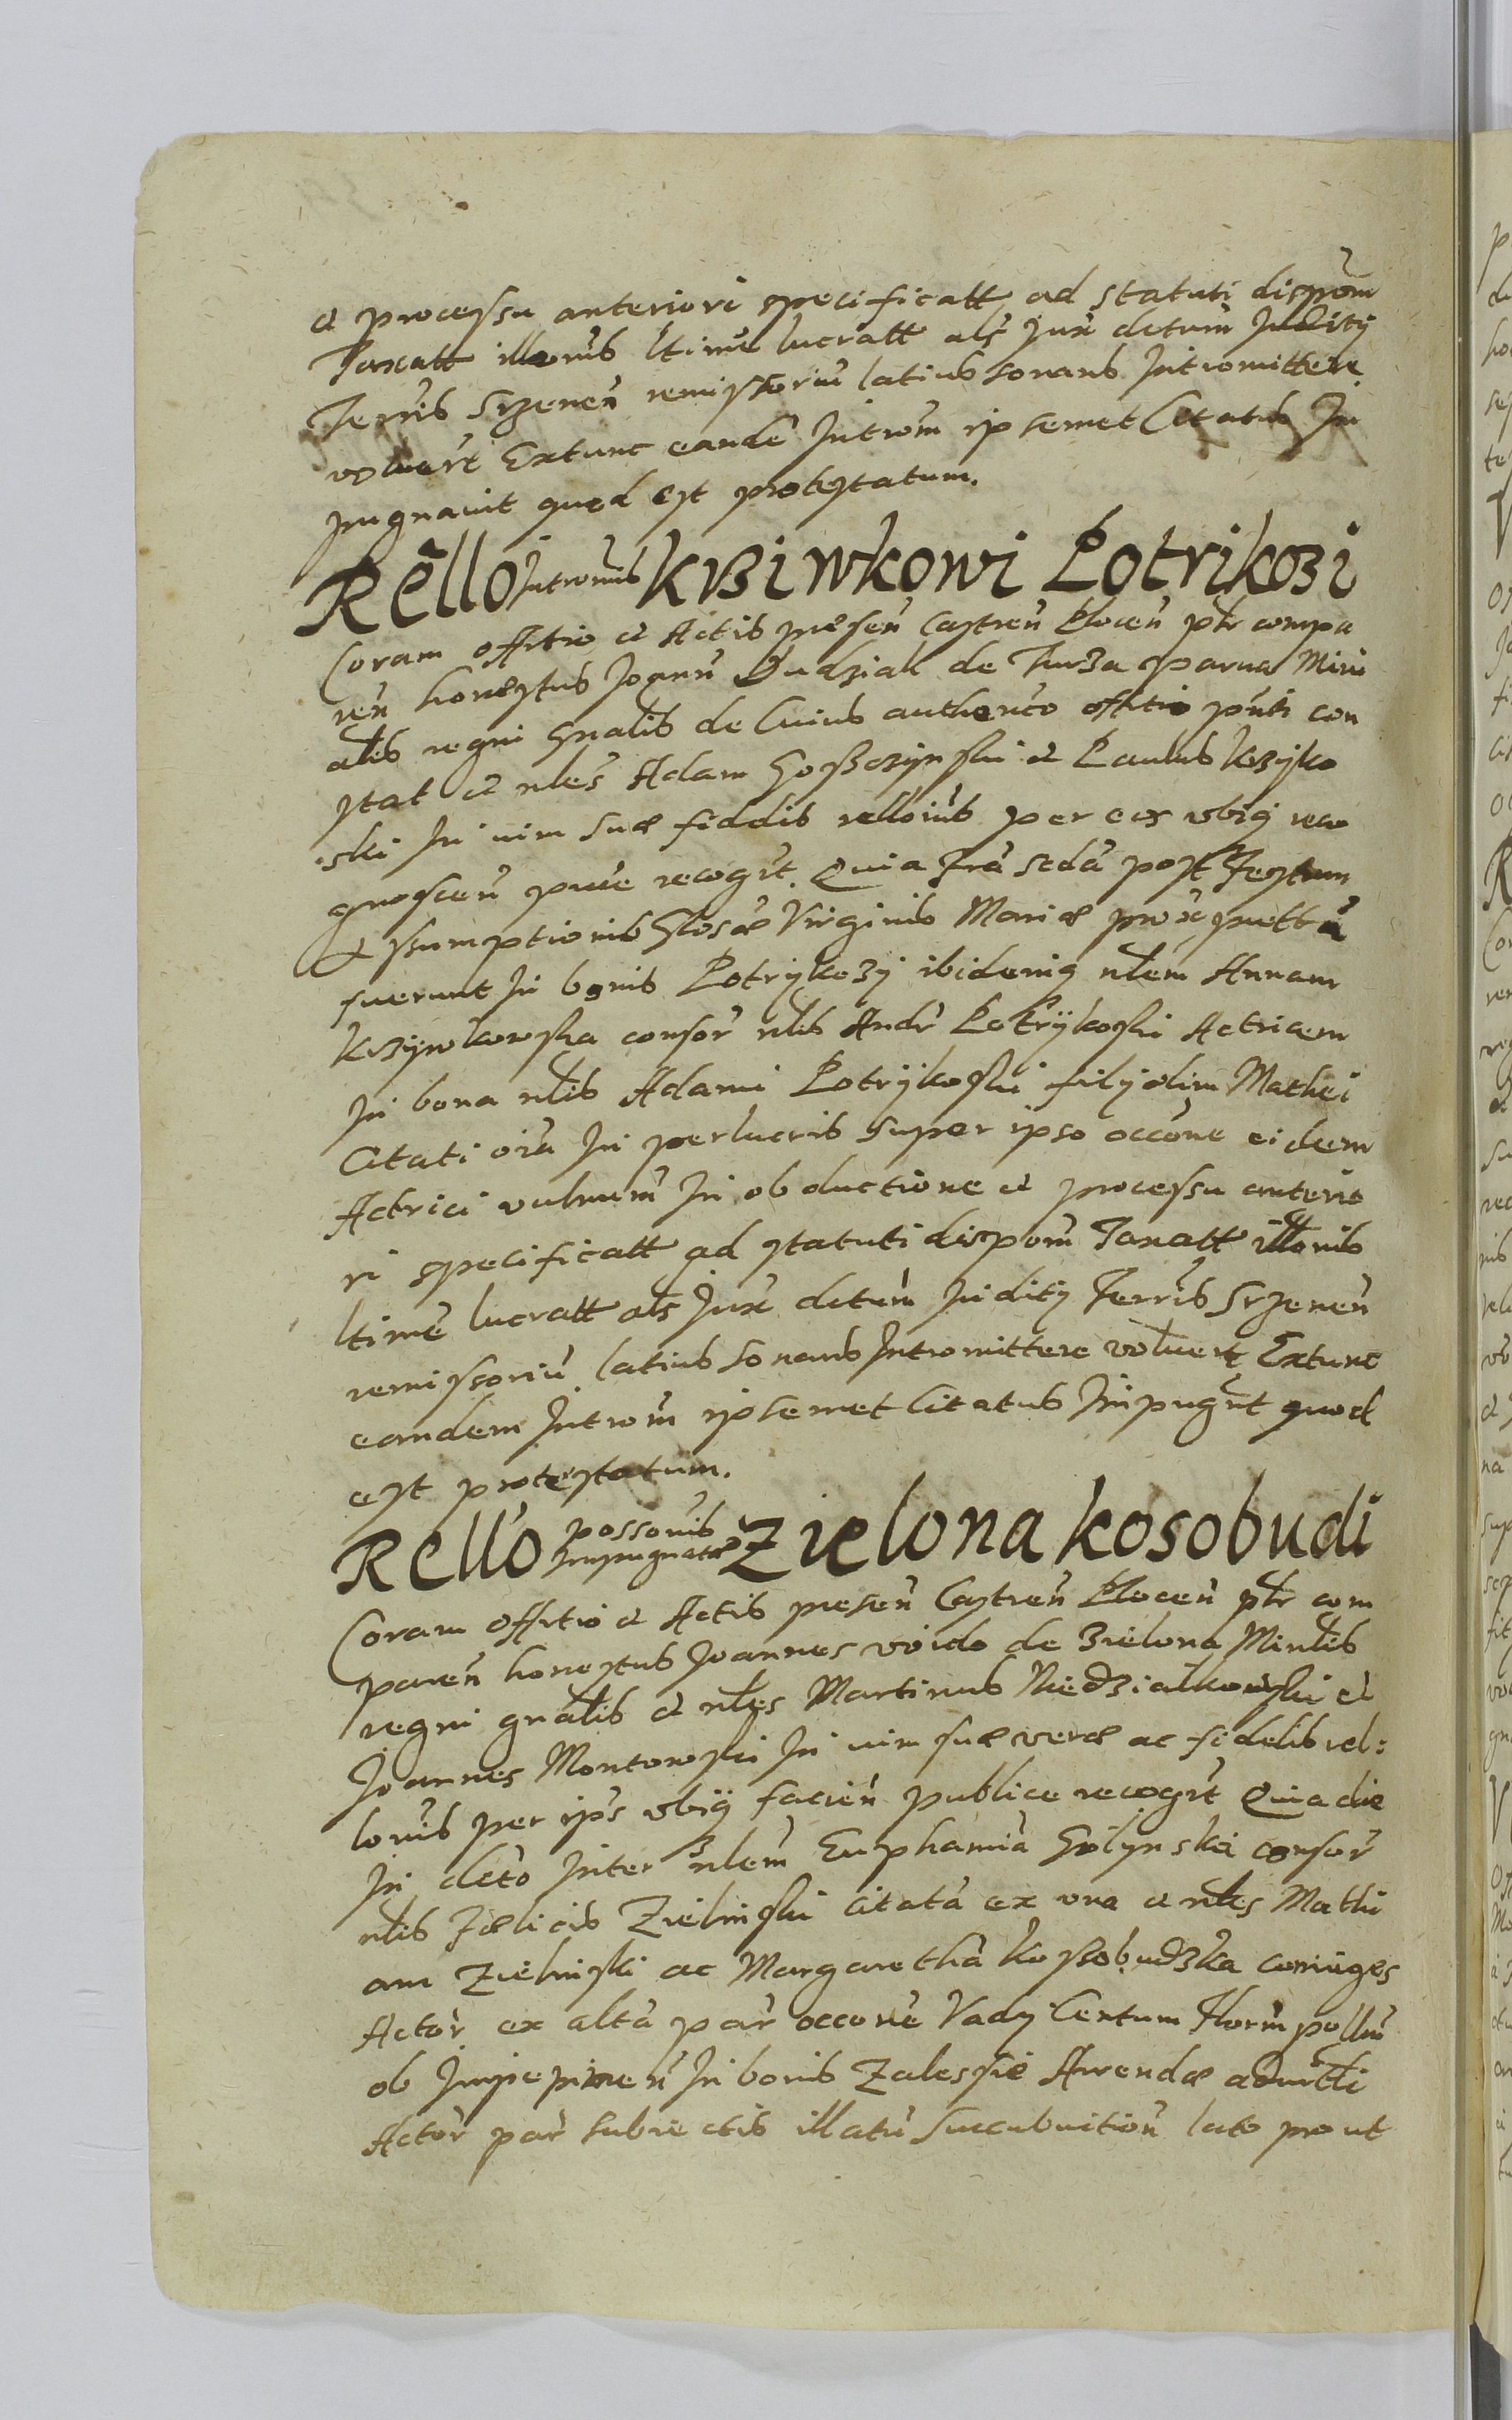 et processu anteriori specificatt ad statuti dispom̃
Taxatt illorub ltime lucratt als Jux detum Juditÿ
Terrib Srzeneñ remissoriũ latiub sonanb Intromittere
voluert Extunc eandẽ Introm̃ ipsemet Citatub Im
pugnauit quod est protestatum.
Rello Intromib Krziwkowi Potrikozi
Coram offitio et Actib presen̄ Castren̄ Plocen̄ ptr compa
ren̄ honestub Joann̄ Dudziak de Turza parua Mini
alib regni Gnalib de Cuiub authenco offitio pn̄ti con
stat et nles Adam Gosczynski et Paulub krzyko
ski In uim suæ fiddib relloinb per eos vbiq reco
gnoscen̄ puce recogt. Quia Fra Scda post Festum
Assumptionib Glosæ Virginib Mariæ prox pntta
fuerunt In bonib Potrykozy ibidemq nlem Annam
krzywkowska consor nlib Andr Potrÿkoski Actricem
In bona nlib Adami Potrÿkoski filÿ olim Mathei
Citati oia In perlucrib super ipso occone eidem
Actrici vulnerum In obductione et processu anterio
ri specificatt ad statuti dispom̃ Taxatt illorub
ltime lucratt als Jux detum Juditÿ Terrib Srzenen̄
remissoriũ latiub sonanb Intromittere voluert Extunc
eandem Introm̃ ipsemet Citatub Impugnt quod
est protestatum.
Rello possonib Impugnatæ Zielona kosobudi
Coram offitio et Actib presen̄ Castren̄ Plocen̄ ptr com
paren̄ honestub Joannes woido de Zielona Minlib
regni gnalib et nles Martinub Niedzialkowski et
Joannes Montowski In uim suæ veræ ac fidelib rel:
lonib per ips vbiq facien̄ publice recogt Quia die
In deto Inter nlem Euphamia Golynski consor
nlib Fælicib Zielinski citata ex vna et nles Mathi
am Zielinski ac Margaretha kossobudzka coniuges
Actor ex alta par occone Vadÿ Centum Florm pollm
ob In bonib Zalessie Arendæ
Actor par subiectib illatũ Succubuition̄ lato prout